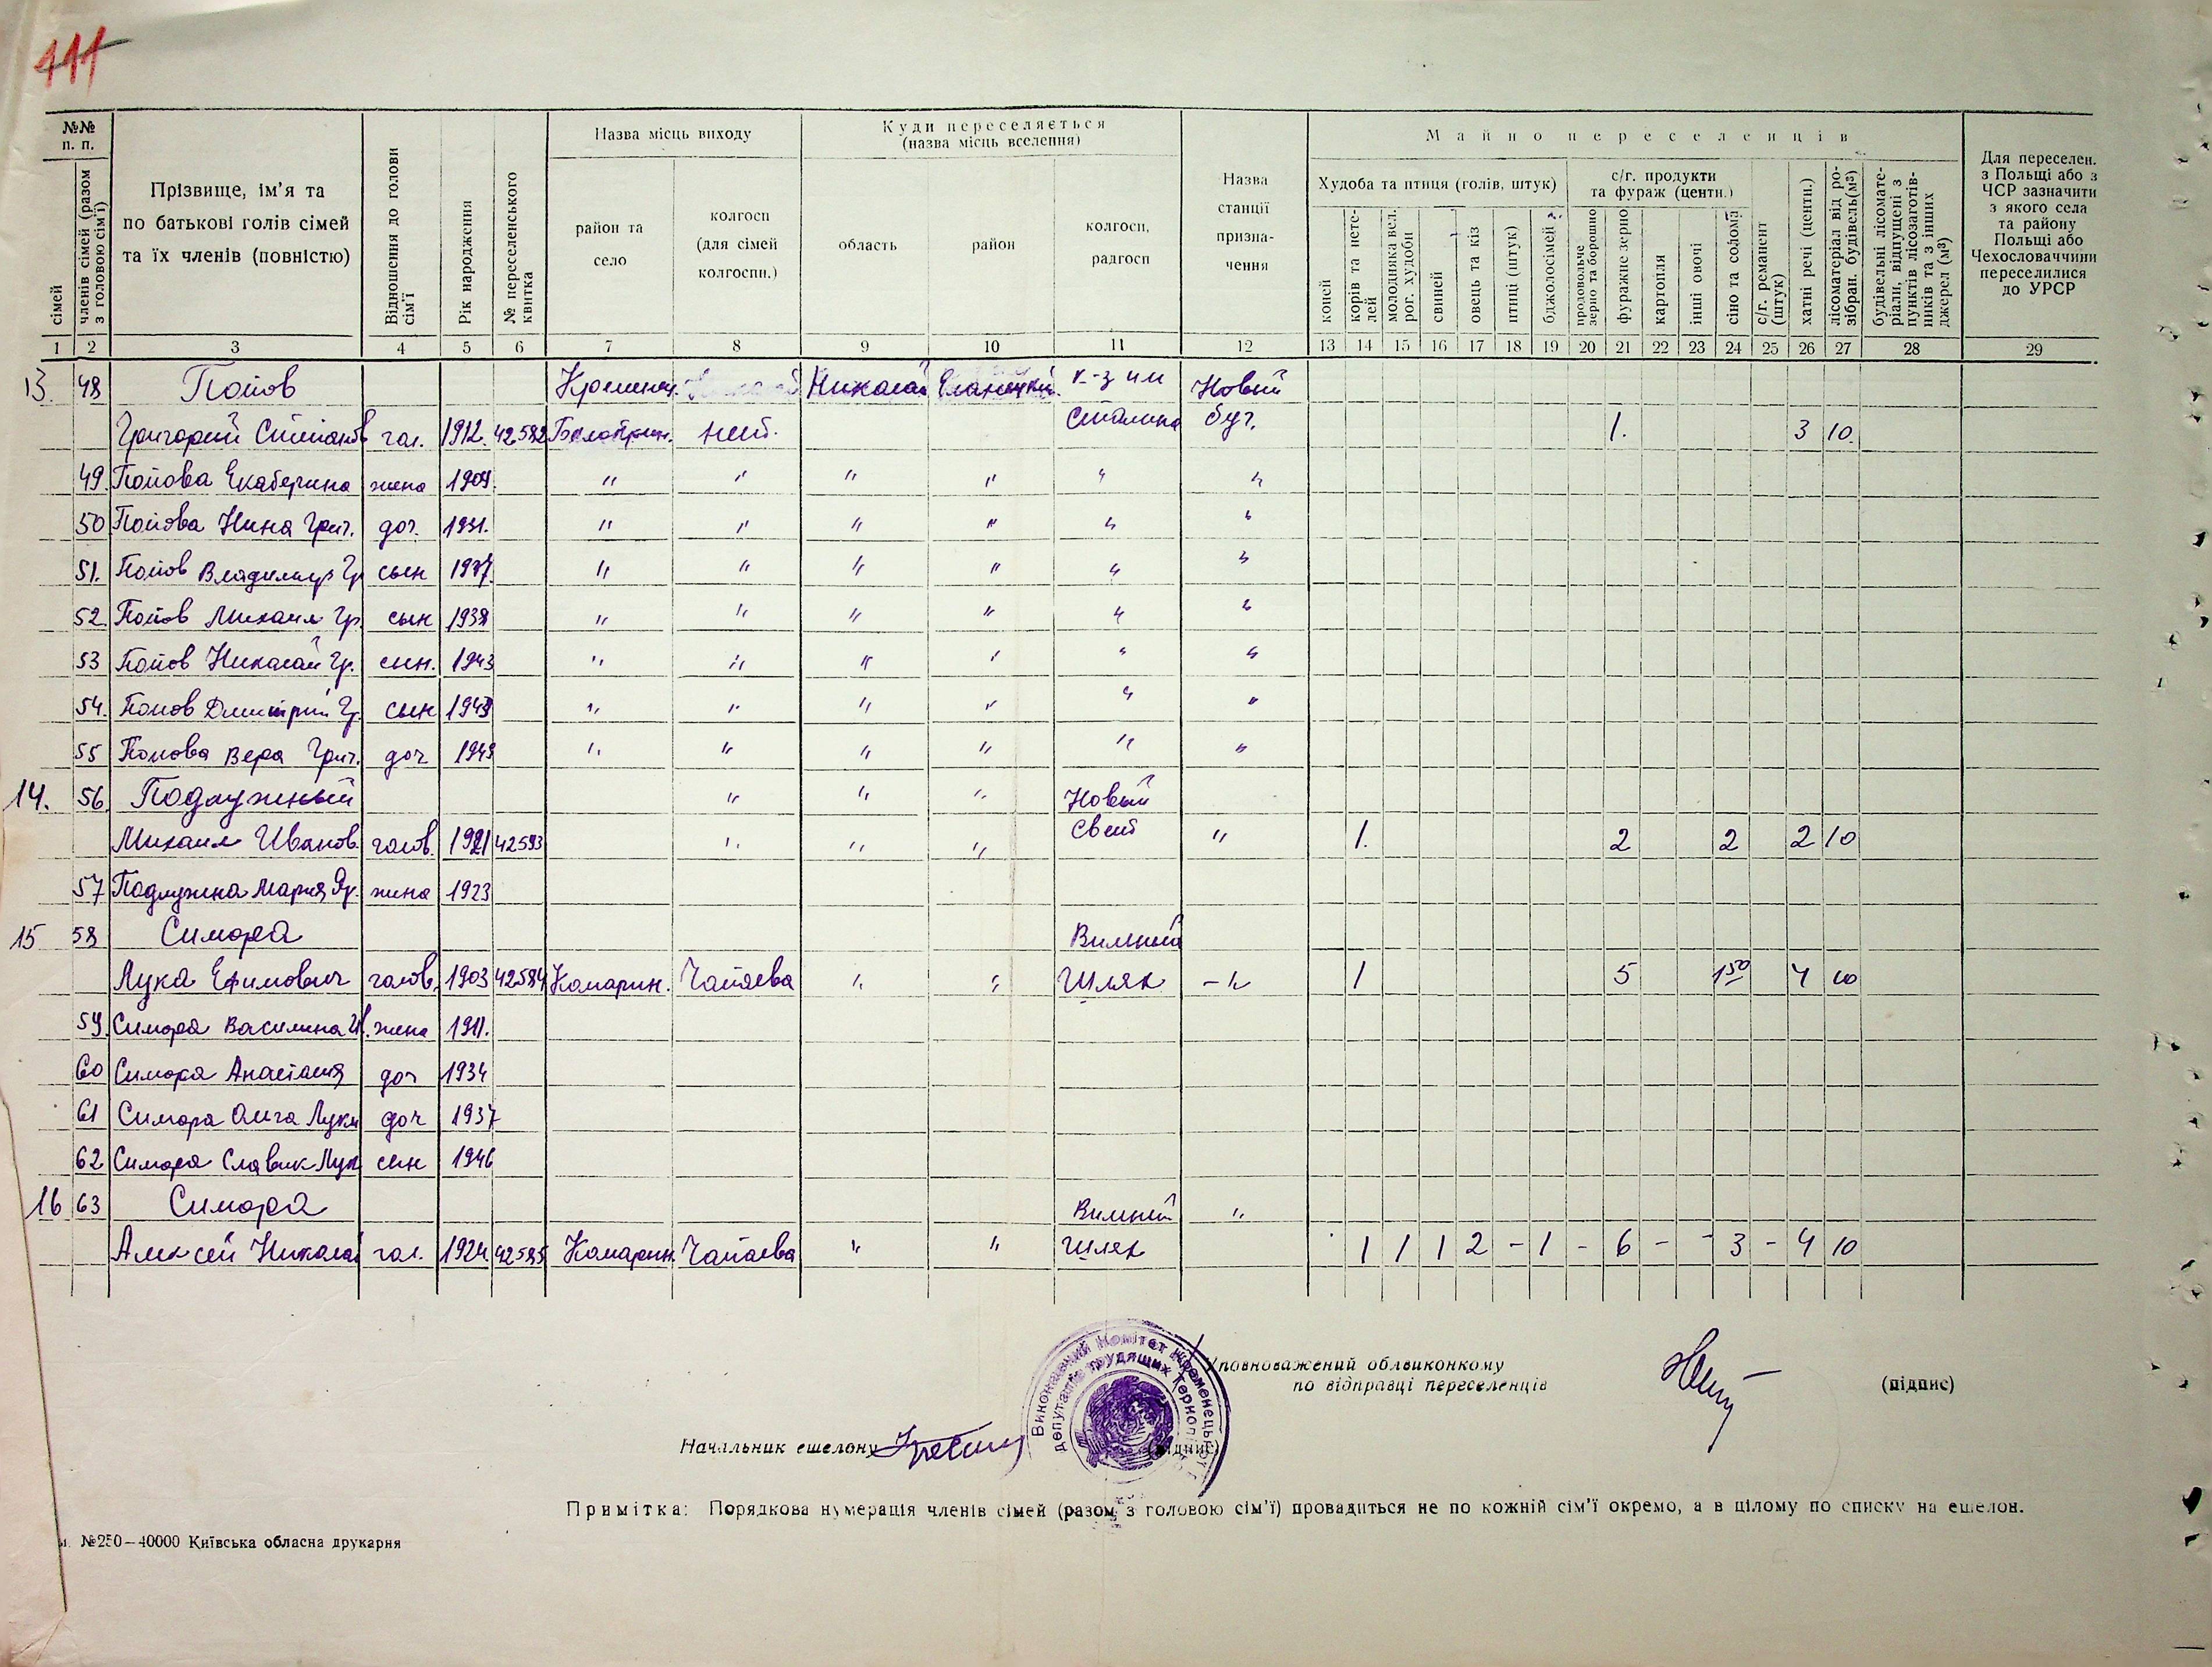 №№ п. п.
сімей
членів сімей (разом з головою сім'ї)
Прізвище, ім'я та
по батькові голів сімей
та їх членів (повністю)
Відношення до голови сім'ї
Рік народження
№ переселенського квитка
Назва місць виходу
район та
село
колгосп
(для сімей
колгоспн.)
Куди переселяється
(назва місць вселення)
область
район
колгосп,
радгосп
Назва
станції
призна-
чення
Майно переселенців
Худоба та птиця (голів, штук)
коней
корів та нете-
лей
молодняка вел.
рог. худоби
свиней
овець та кіз
птиці (штук)
бджолосімей
с/г. продукти
та фураж (центн.)
продовольче
зерно та борошно
фуражне зерно
картопля
інші овочі
сіно та солома
с/г. реманент
(штук)
хатні речі (центн.)
лісоматеріал від ро-
зібран. будівель(м³)
будівельні лісомате-
ріали, відпущені з
пунктів лісозаготів-
ників та з інших
джерел (м³)
Для переселен.
з Польщі або з
ЧСР зазначити
з якого села
та району
Польщі або
Чехословаччини
переселилися
до УРСР
1 2 3 4 5 6 7 8 9 10 11 12 13 14 15 16 17 18 19 20 21 22 23 24 25 26 27 28 29
13. 48 Попов Кременец. Николай Еланецкий к-з им Новый
Григорий Степанов гол. 1912. 42582 нет. Сталина Буг. 1. 3 10.
49. Попова Екатерина жена 1909. " " " " " "
50 Попова Нина Григ. доч. 1931. " " " " " "
51. Попов Владимир Гр сын 1937. " " " " " "
52. Попов Михаил Гр. сын 1938 " " " " " "
53 Попов Николай Гр. сын. 1943 " " " " " "
54. Попов Дмитрий Гр. сын " " " " " "
55 Попова Вера Григ. доч 1949 " " " " " "
14. 56 Подлужный " " " Новый
Михаил Иванов. голов. 1921 42583 " " " Свет " 1. 2 2 2 10
57 Подлужна Мария жена 1923
15 58 Симора Вильный
Лука Ефимович голов. 1903 42584 Комарин. Чапаева " " Шлях -"- 1 5 1 50 4 10
59. Симора Василина жена 1911.
60 Симора Анастасия доч 1934
61 Симора Ольга Луки доч 1937
62 Симора Славик Лук сын 1946
16 63 Симора Вильный "
Алексей Николай гол. 1924 42585 Комарин. Чапаева " " Шлях 1 1 1 2 - 1 - 6 - - 3 - 4 10
Уповноважений облвиконкому
по відправці переселенців
(підпис)
Начальник ешелону
(підпис)
Виконавчий Комітет Кременецької
депутатів трудящих Терноп
Примітка: Порядкова нумерація членів сімей (разом з головою сім'ї) провадиться не по кожній сім'ї окремо, а в цілому по списку на ешелон.
№250—40000 Київська обласна друкарня